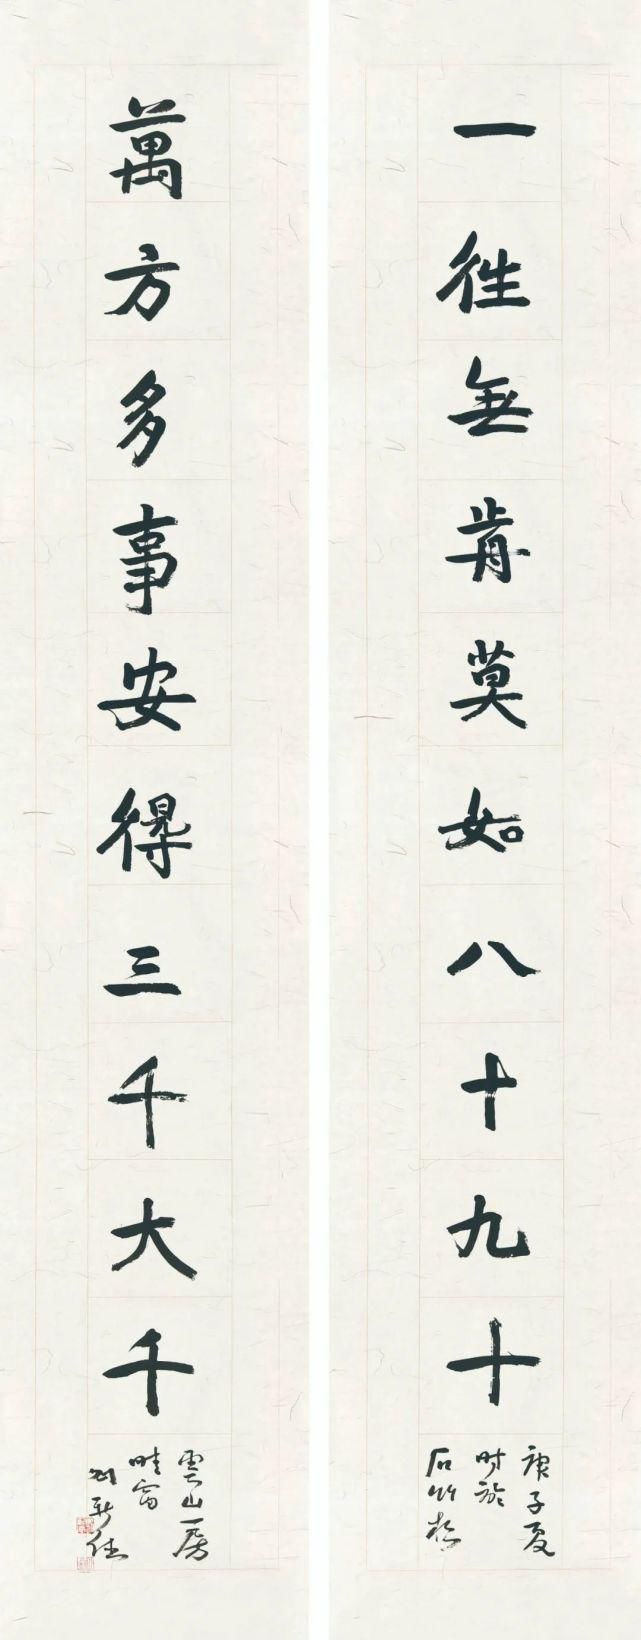 一往無前莫如八十九十
庚子夏
時於
石竹
萬方多事安得三千大千
雲山房
晴窗
劉新德